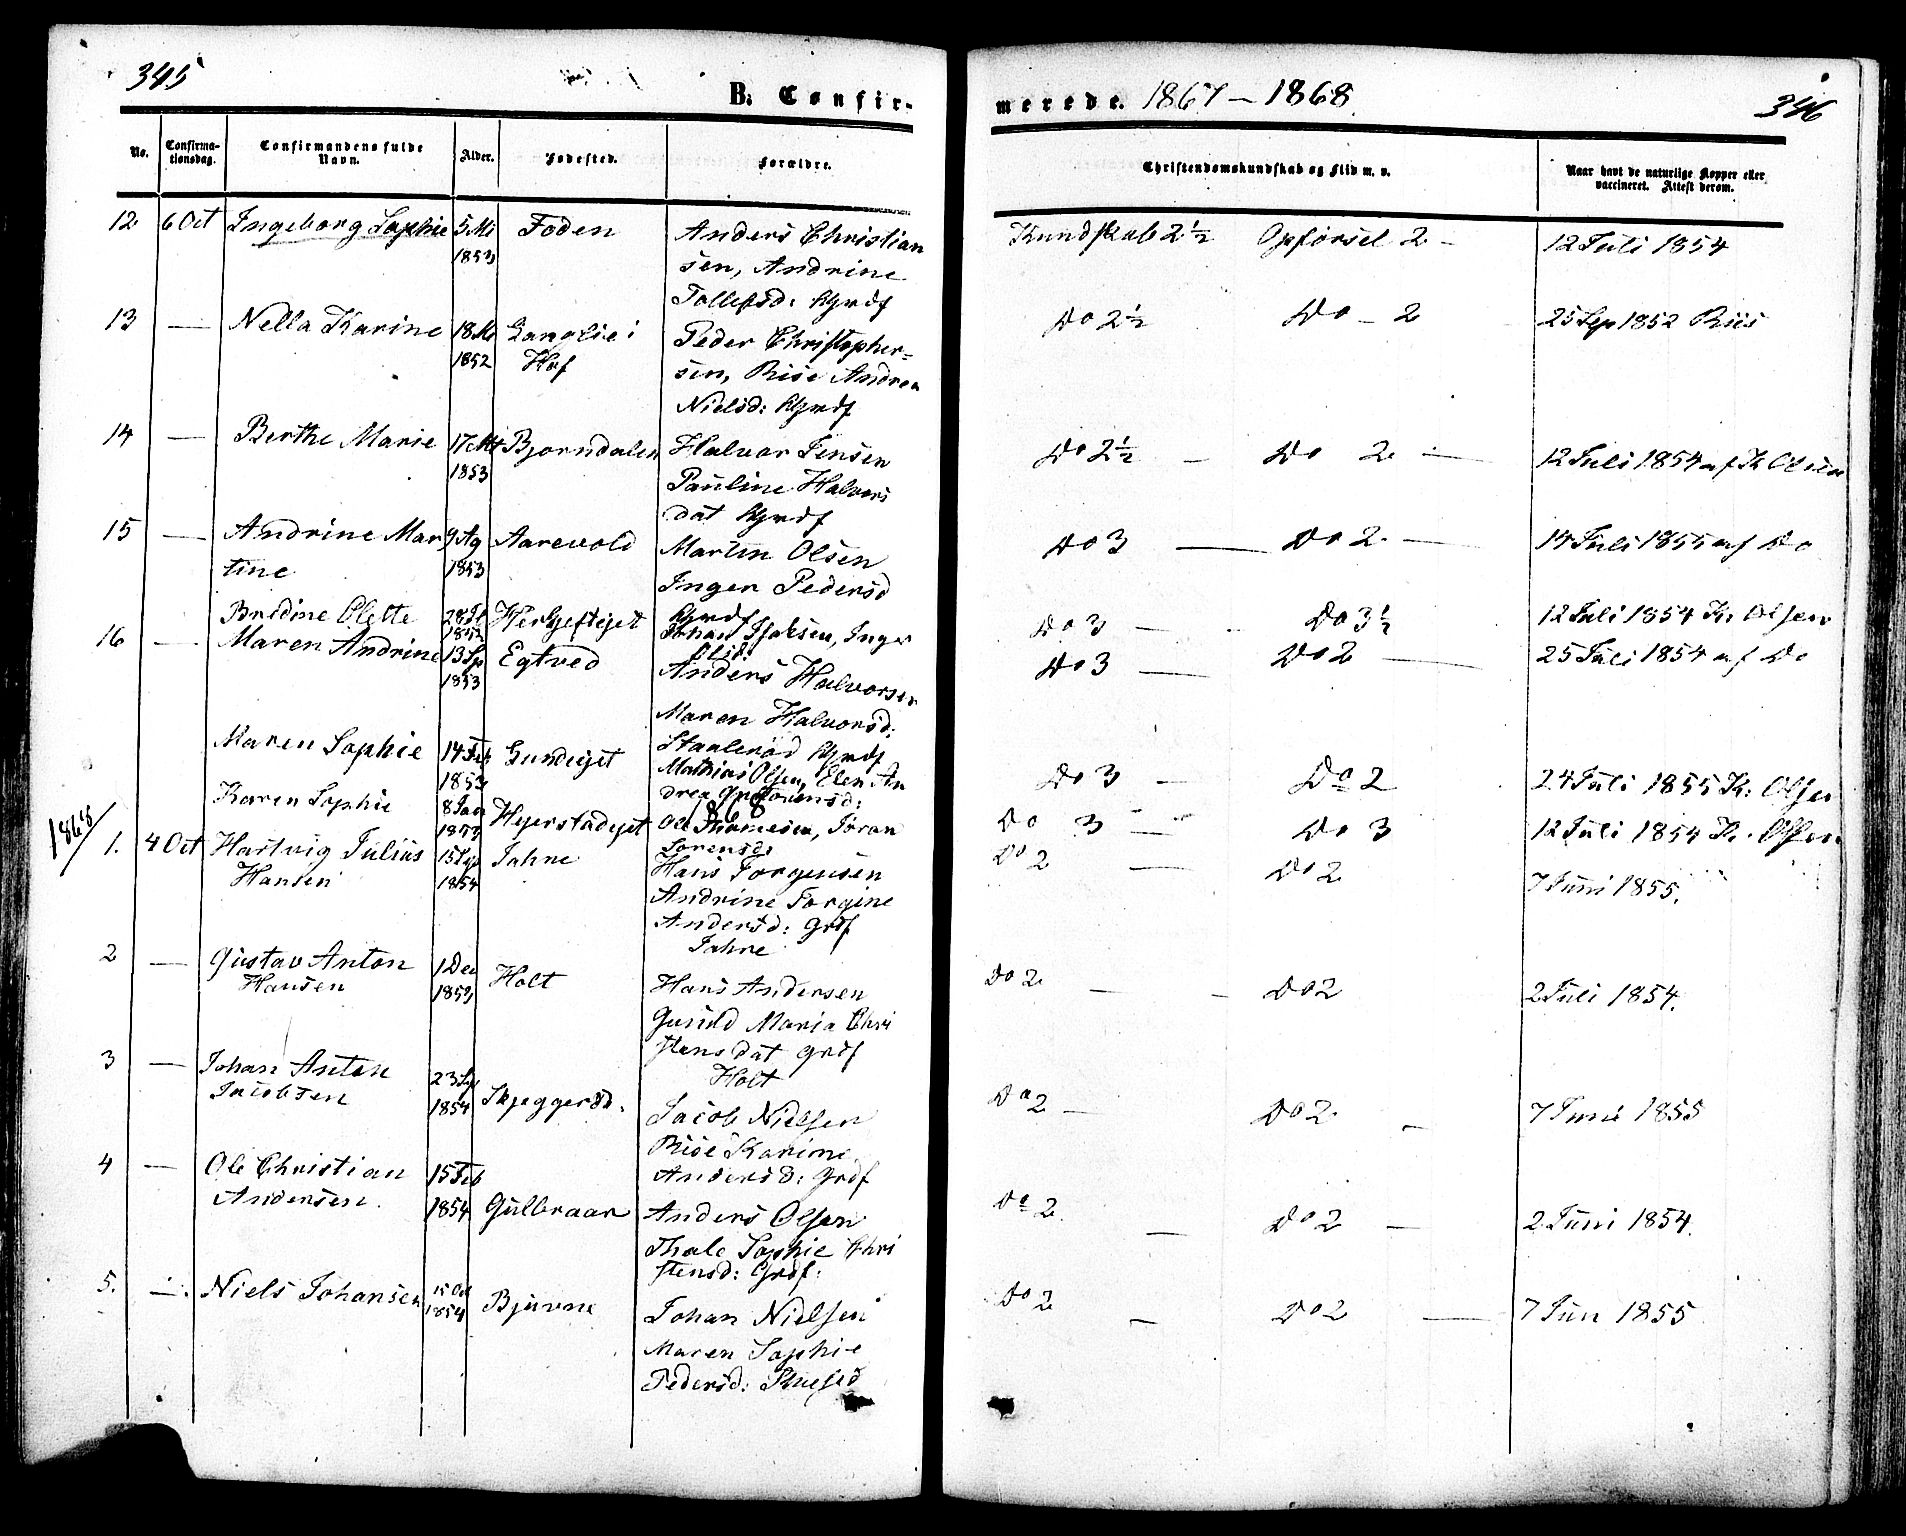 345
B. Confir-
No.
Confirma-
tionsdag.
Confirmandens fulde
Navn.
Alder.
Fødested.
Forældre.
12 6 Oct Ingeborg Sophie 5 Mi 1853 Foden
Anders Christian
sen, Andrine
Tollefsd:
13 — Nella Karine 18 1852 Langlie i
Hof
Peder Christopher-
sen, Rise Andrea
Nielsd:
14 — Berthe Marie 17 Mt 1853 Bjorndalen
Halvor Jensen
Pauline Halvors
dat
15 — Andrine Mar
tine
9 Ag 1853 Aarevold
Martin Olsen
Inger Pedersd
Bredine Olette
Johan Isaksen, Inger
Olsd
16 — Maren Andrine 13 Sp 1853 Egtved
Anders Halvorsen
Maren Halvorsd:
Maren Sophie 14 Feb 1853 Gundejet
Mathias Olsen, Elen An
drea
Karen Sophie 8 Jan 1853
1868
Ole Thomesen, Joran
Sorensd:
1868
1. 4 Oct Hartvig Julius
Hansen
15 Sp 1854 Jahre
Hans Jorgensen
Andrine Torgine
Andersd: Grdf
Jahre
2 — Gustav Anton
Hansen
1 Dec 1853 Holt
Hans Andersen
Gunild Maria Chri
stensdat Grdf
Holt
3 — Johan Anton
Jacobsen
23 Sp 1854
Jacob Nielsen
Rise Karine
Andersd: Grdf
4 — Ole Christian
Andersen.
15 Feb 1854 Gulbraar
Anders Olsen
Thale Sophie Chri
stensd: Grdf:
5. — Niels Johansen 15 Oct 1854 Bjurne
Johan Nielsen
Maren Sophie
Pedersd:
merede. 1867 — 1868
346
Christendomskundskab og Flid m. v.
Naar havt de naturlige Kopper eller
vaccineret. Attest derom.
Kundskab 2½ Opførsel 2 — 12 Juli 1854
Do 2½ Do — 2 25 Sep 1852 Riis
Do 2½ — Do 2 — 12 Juli 1854 af K Olsen
Do 3 — Do 2 — 14 Juli 1855 af Do
Do 3 — Do 3½ 12 Juli 1854 K. Olsen
Do 3 — Do 2 — 25 Juli 1854 af Do
Do 3 — Do 2 24 Juli 1855 K: Olsen
Do 3 — Do 3 12 Juli 1854 K. Olsen
Do 2 — Do 2 7 Juni 1855.
Do 2 — Do 2 2 Juli 1854.
Do 2 — Do 2 — 7 Juni 1855
Do 2 — Do 2 — 2 Juni 1854.
Do 2 — Do 2 — 7 Jun 1855